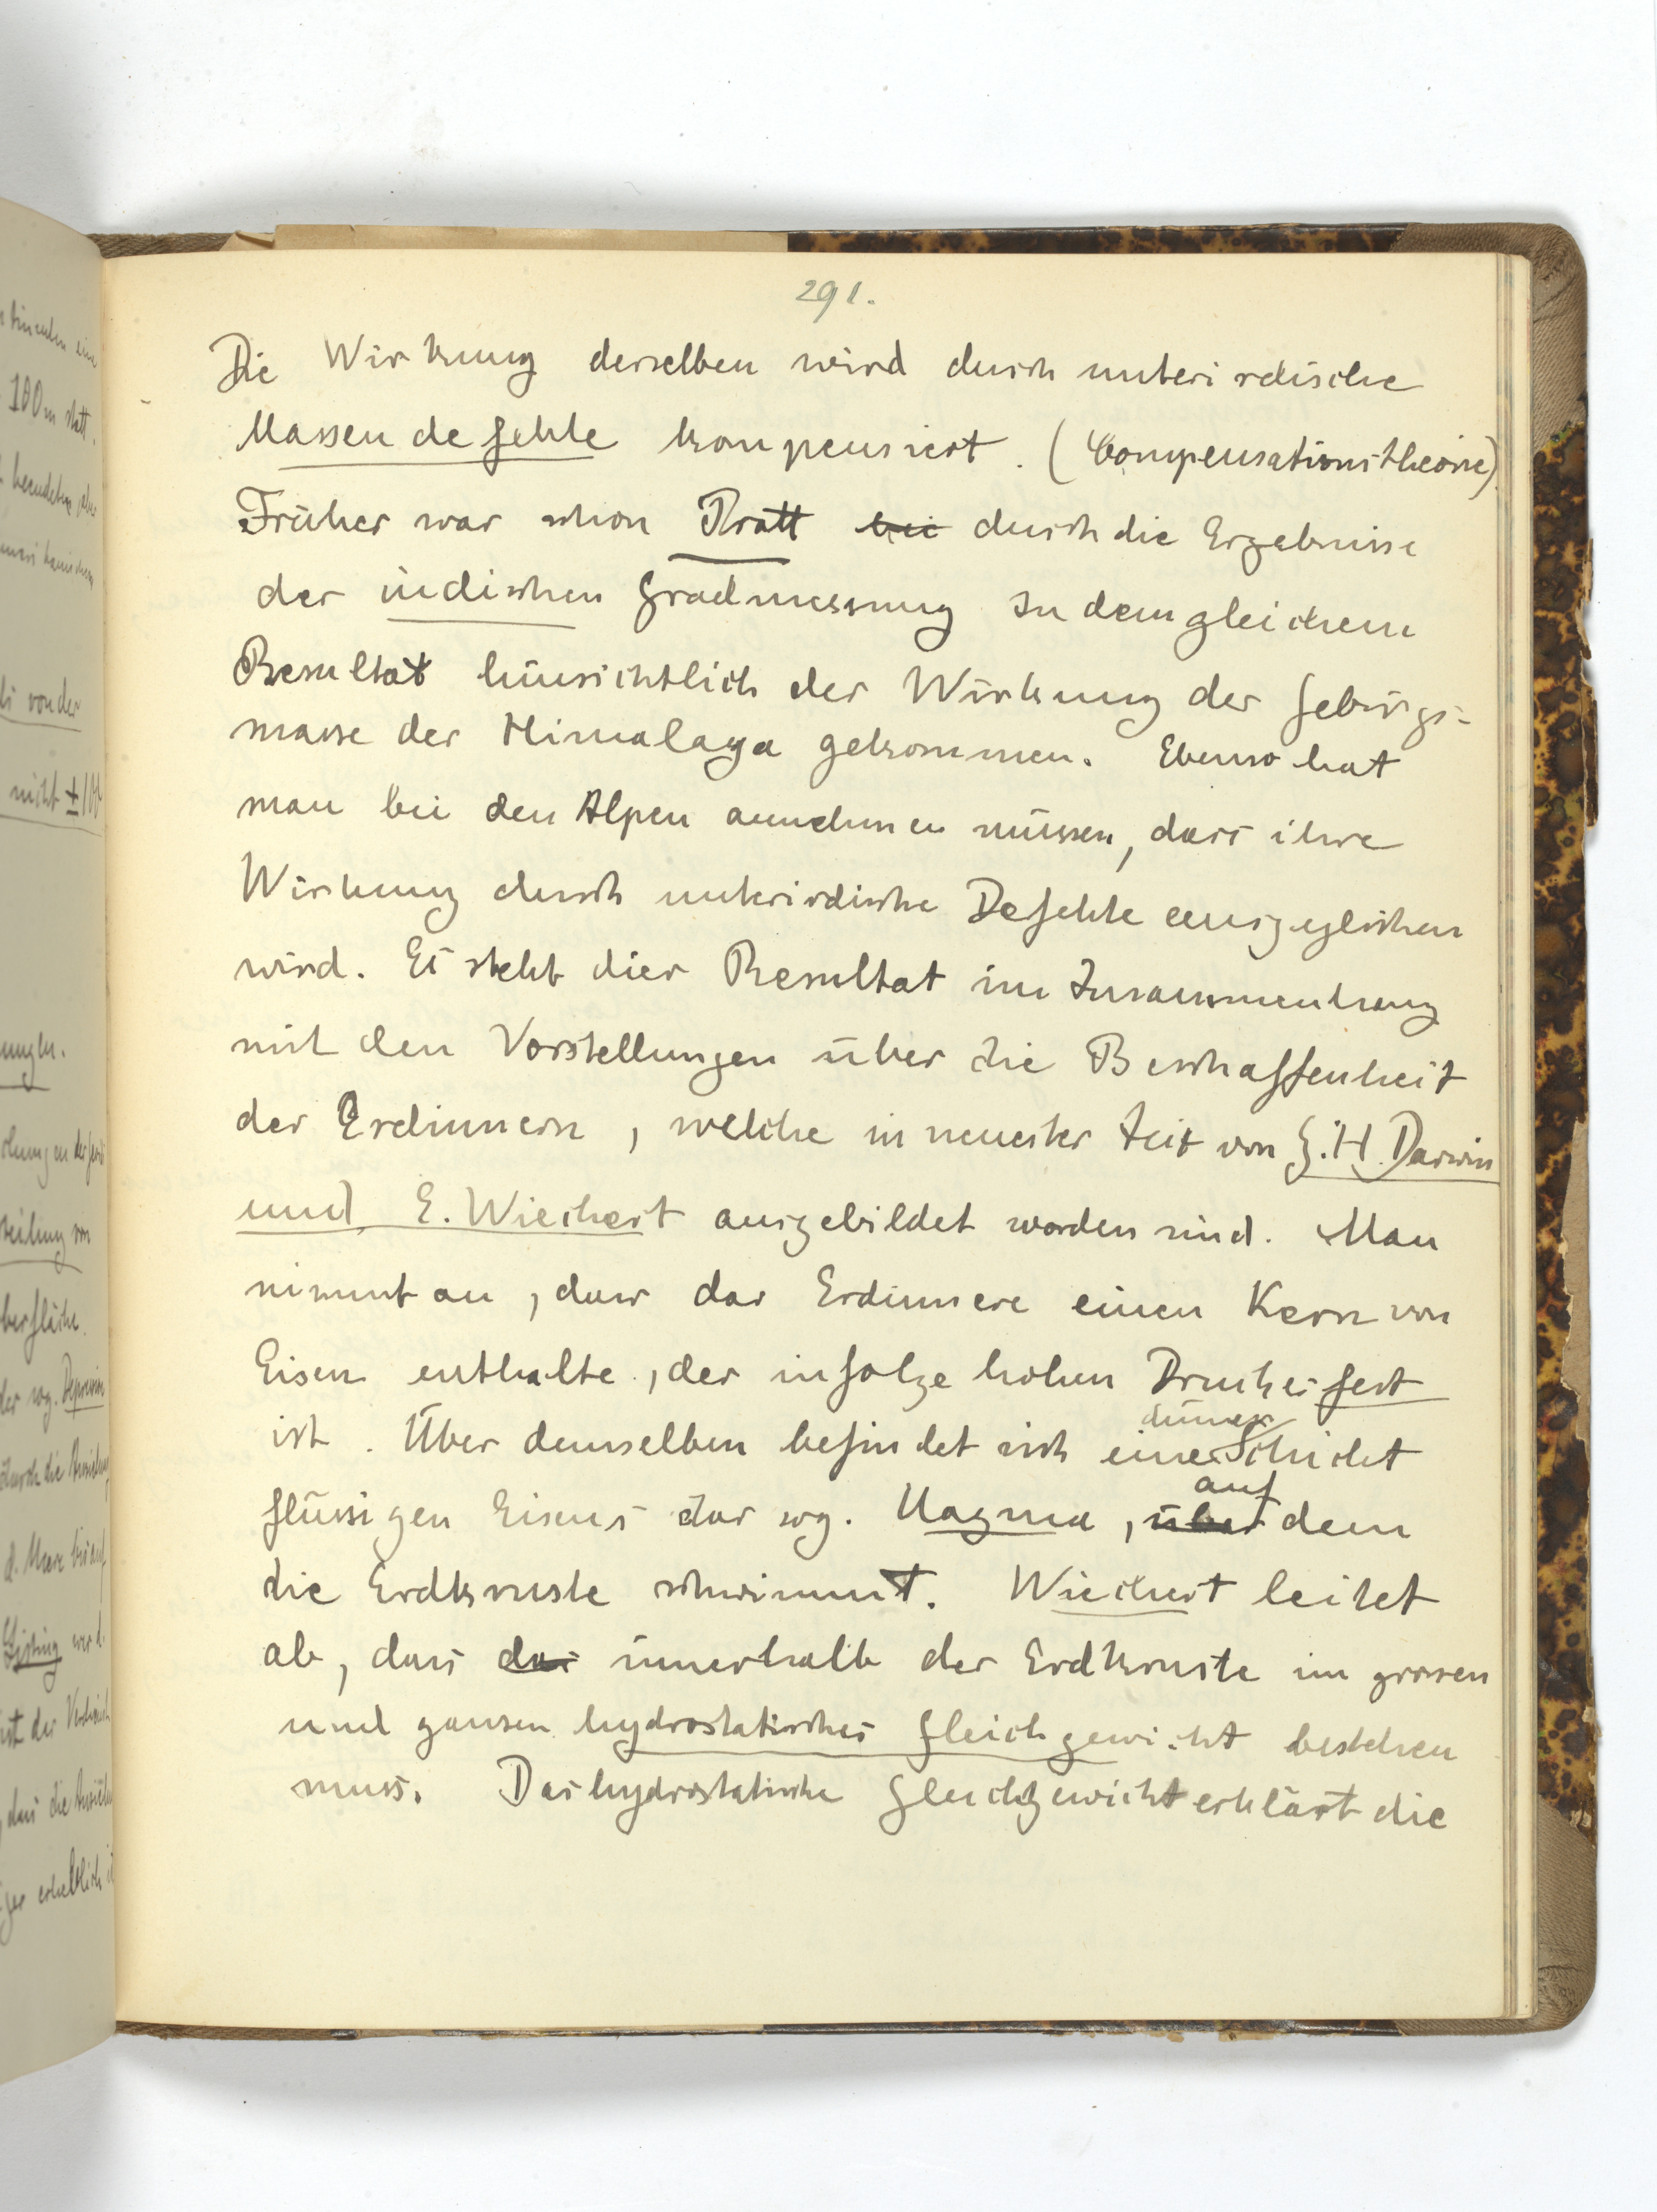 291.
Die Wirkung derselben wird durch unterirdische
Massendefekte kompensiert. (Compensationstheorie).
Früher war schon Pratt bei durch die Ergebnisse
der indischen Gradmessung zu dem gleichem
Resultat hinsichtlich der Wirkung der Gebirgs-
masse des Himalaya gekommen. Ebenso hat
man bei den Alpen annehmen müssen, dass ihre
Wirkung durch unterirdische Defekte ausgeglichen
wird. Es steht dies Resultat im Zusammenhang
mit den Vorstellungen über die Beschaffenheit
des Erdinnern, welche in neuester Zeit von G. H. Darwin
und E. Wiechert ausgebildet worden sind. Man
nimmt an, dass das Erdinnere einen Kern von
Eisen enthalte, der infolge hohen Druckes fest
ist. Über demselben befindet sich eine dünne Schicht
flüssigen Eisens das sog. Magma, über auf dem
die Erdkruste schwimmt. Wiechert leitet
ab, dass das innerhalb der Erdkruste im grossen
und ganzen hydrostatisches Gleichgewicht bestehen
muss. Das hydrostatische Gleichgewicht erklärt die
100 m statt.
von der
nicht ±